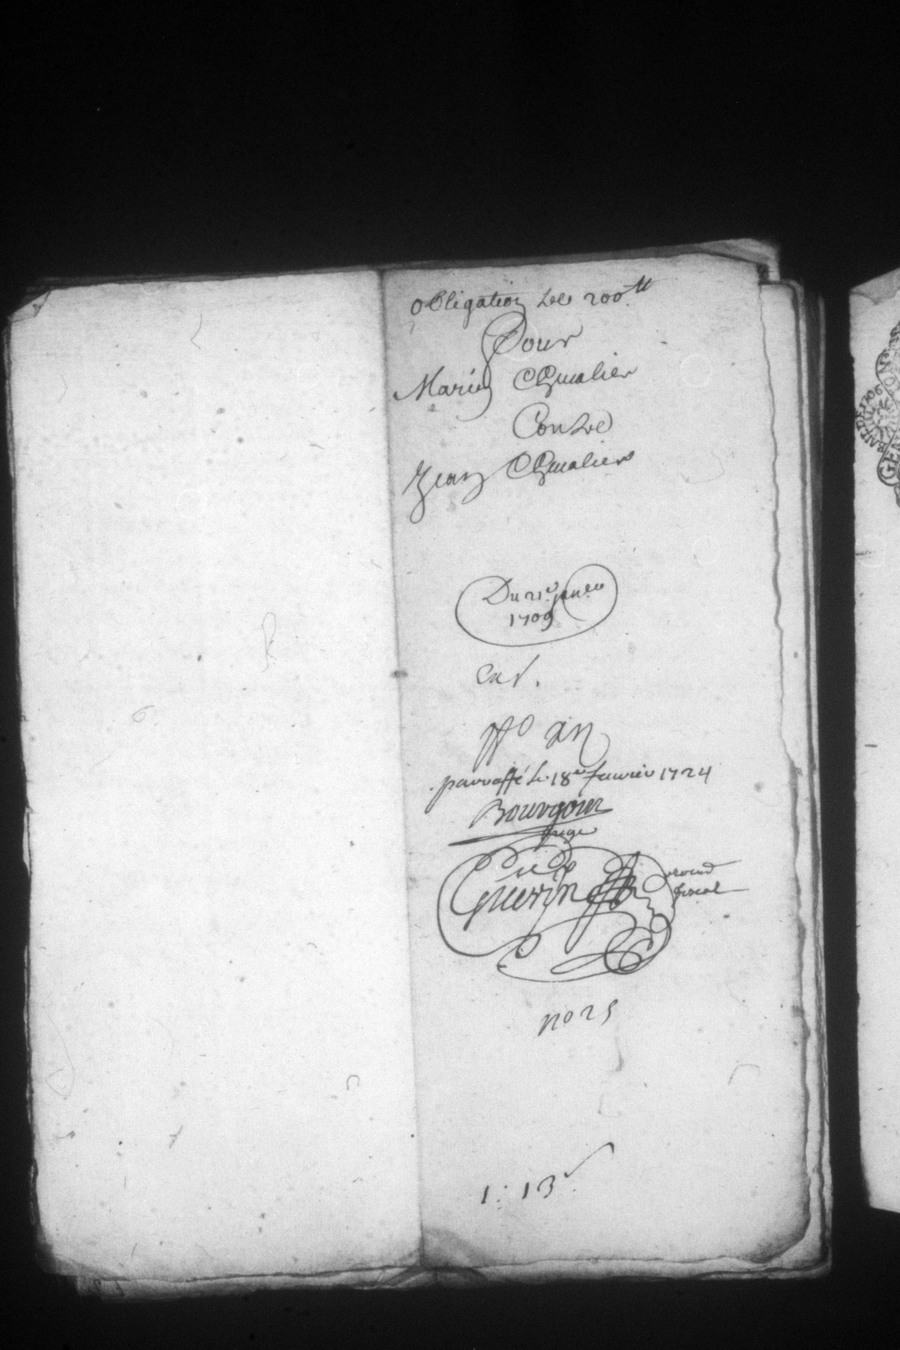 obligation de 200.tt
Pour
Marie Chevalier
Contre
Jean Chevalier
Du 21e janvier
1709
parraffé le 18e feuvrier 1724
Bourgoin
juge
Guerin
fiscal
no 25
1: 13s